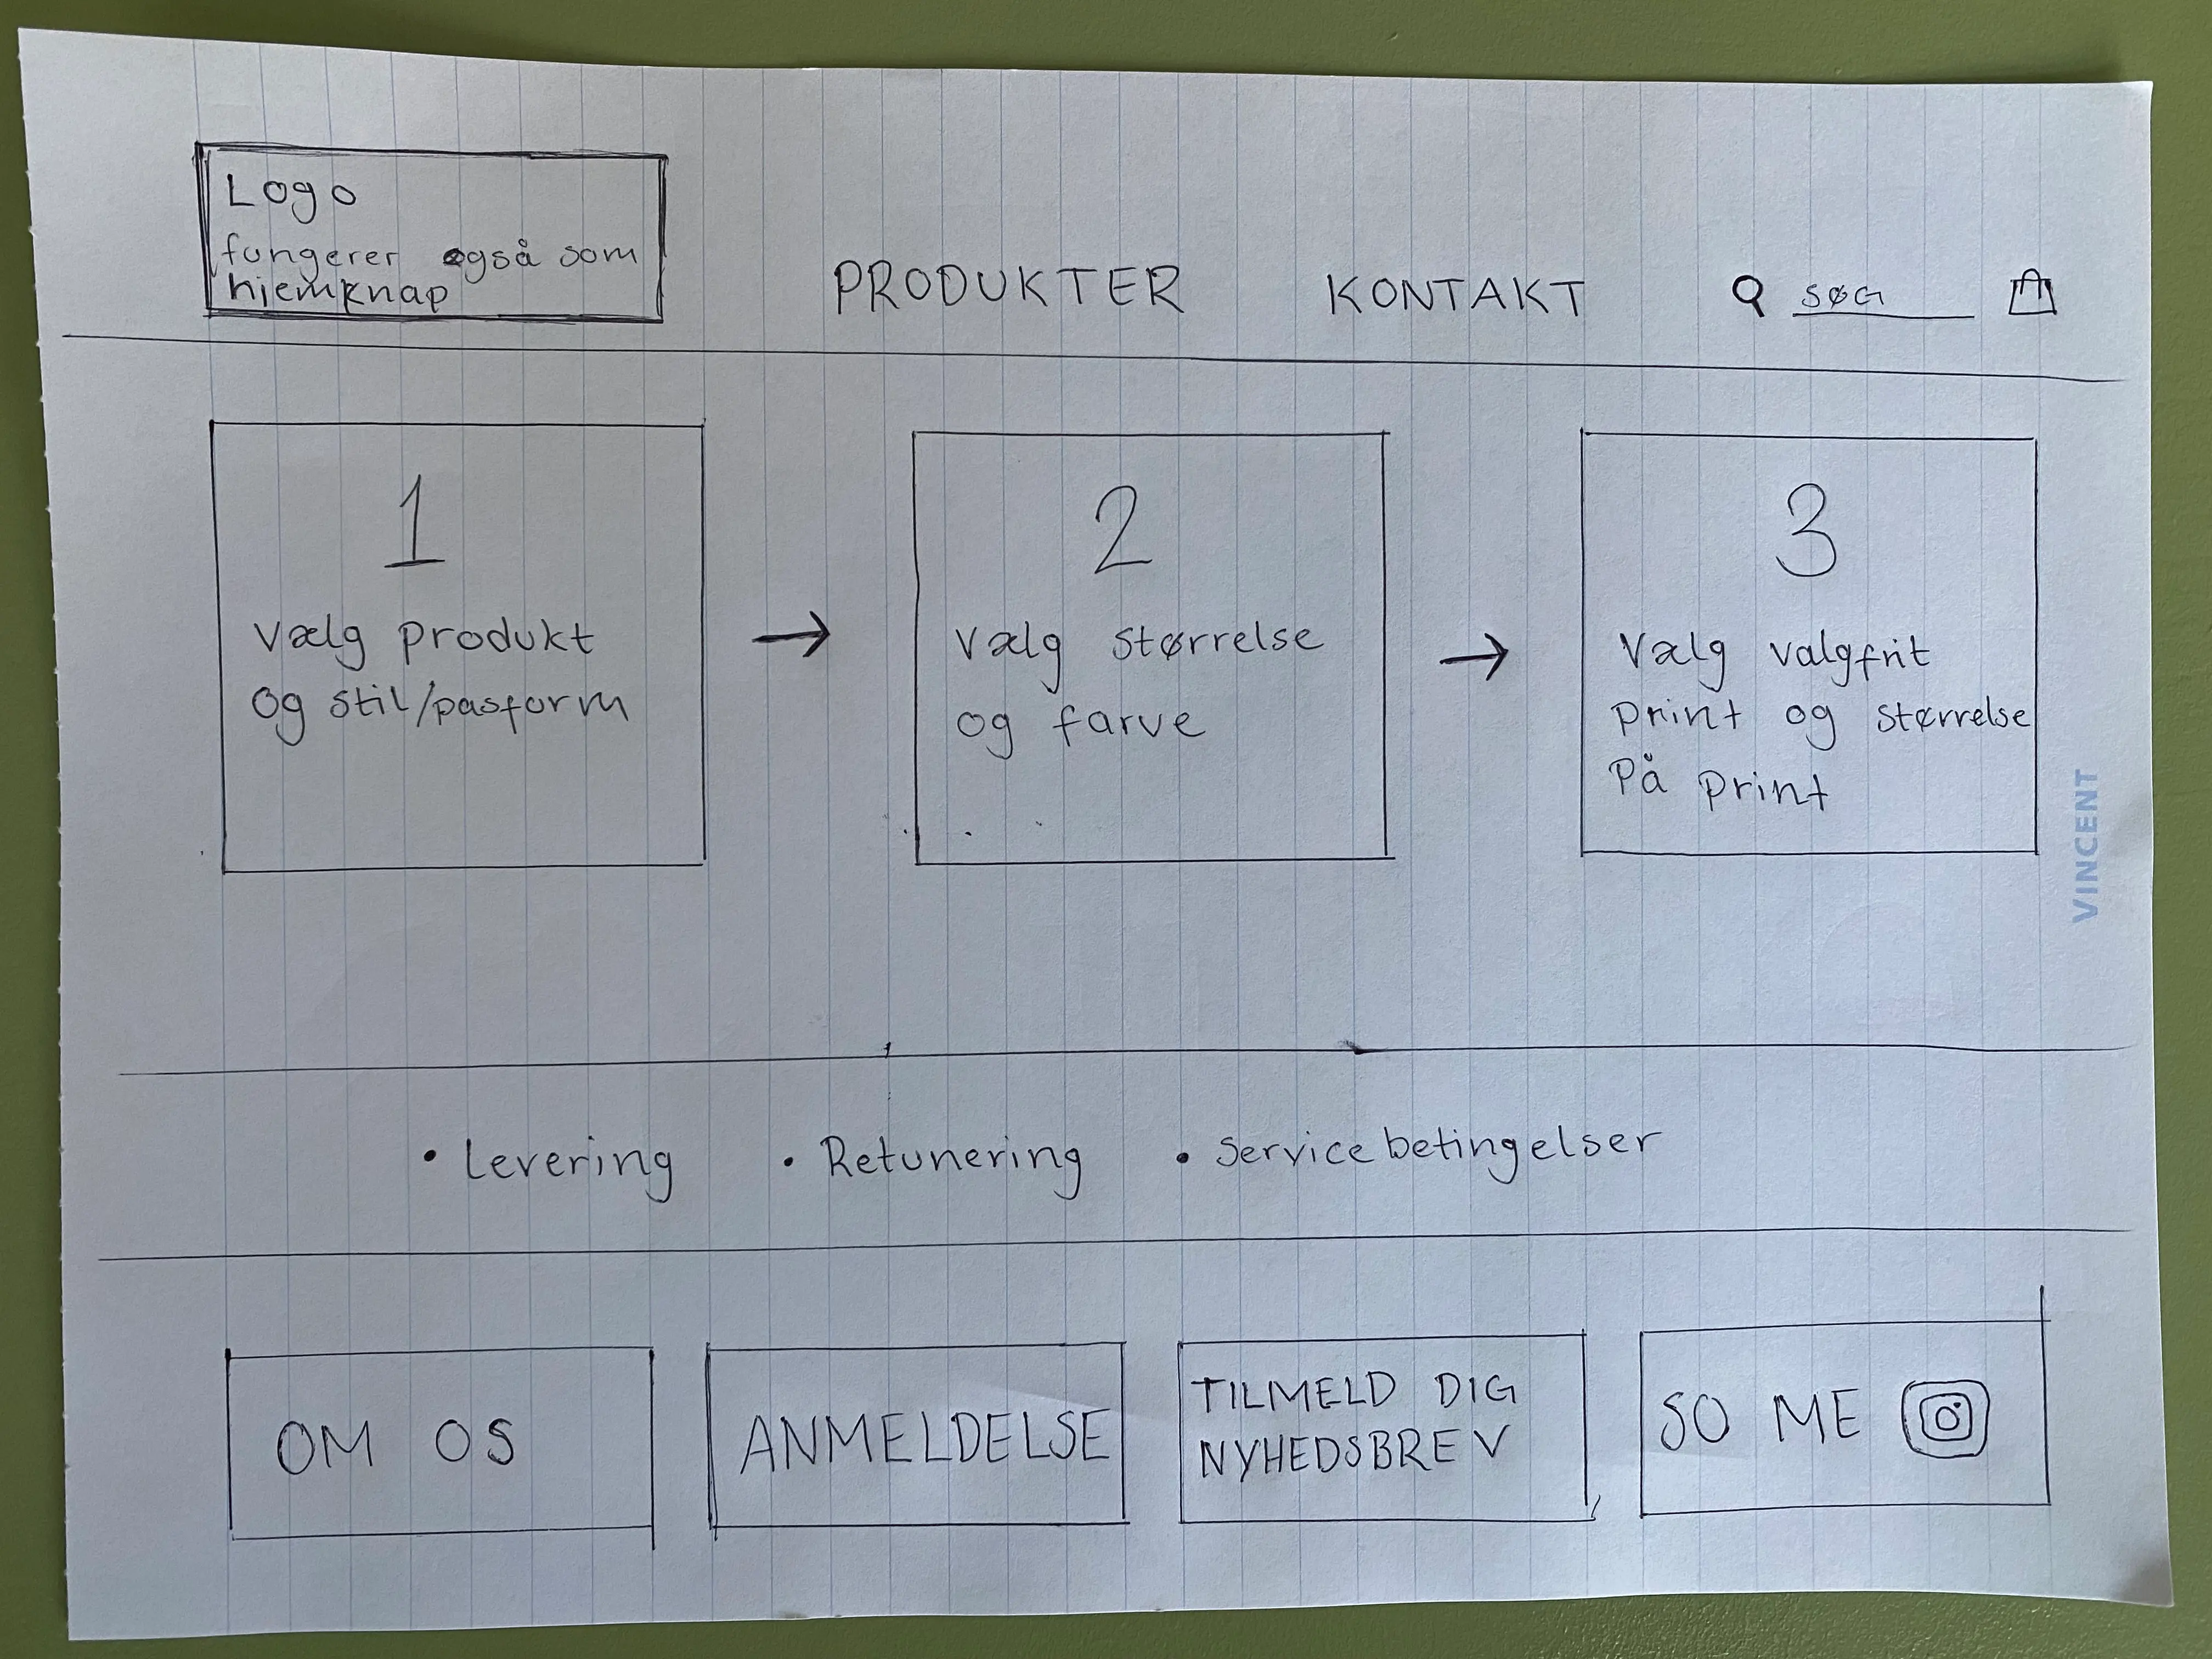 Logo
fungerer også som
hjemknap
PRODUKTER KONTAKT SØG
1
Vælg produkt
og stil/pasform
2
Vælg størrelse
og farve
3
Vælg valgfrit
print og størrelse
På print
VINCENT
• Levering • Retunering • Servicebetingelser
OM OS
ANMELDELSE
TILMELD DIG
NYHEDSBREV
SO ME